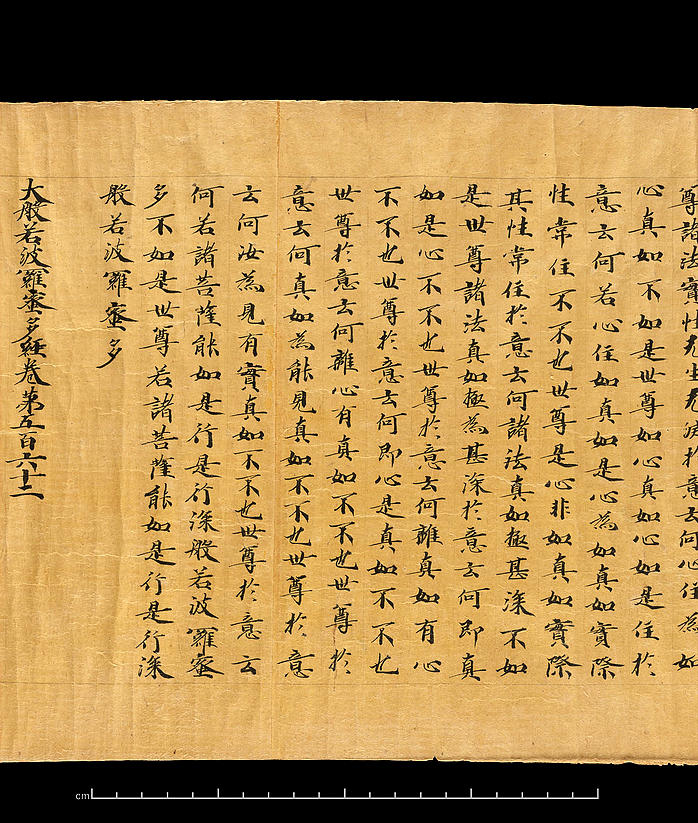 尊諸法實性无生无滅於意云何心住為如
心真如不如是世尊如心真如心如是住於
意云何若心住如真如是心為如真如實際
性常住不不也世尊是心非如真如實際
其性常住於意云何諸法真如極甚深不如
是世尊諸法真如極為甚深於意云何即真
如是心不不也世尊於意云何離真如有心
不不也世尊於意云何即心是真如不不也
世尊於意云何離心有真如不不也世尊於
意云何真如為能見真如不不也世尊於意
云何汝為見有實真如不不也世尊於意云
何若諸菩薩能如是行是行深般若波羅蜜
多不如是世尊若諸菩薩能如是行是行深
般若波羅蜜多
大般若波羅蜜多經卷第五百六十二
cm